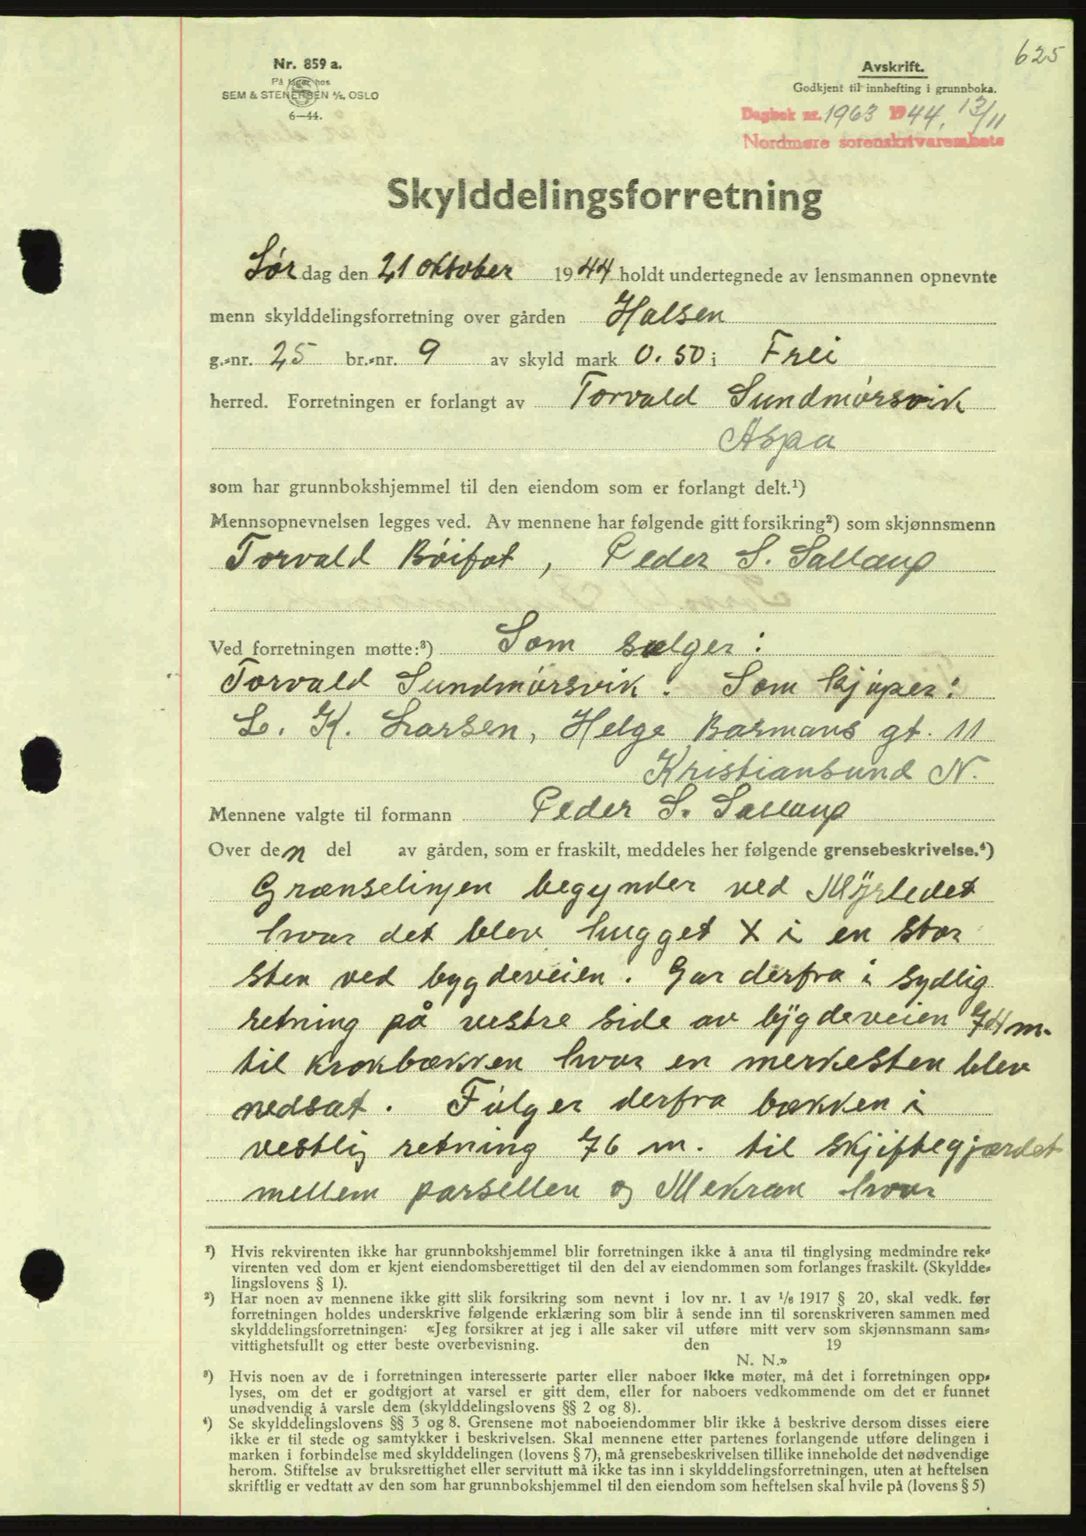 625
Nr. 859 a.
På lager hos
SEM & STENERSEN A/S, OSLO
6—44.
Avskrift.
Godkjent til innhefting i grunnboka.
Dagbok nr. 1963 1944. 13/11
Nordmøre sorenskrivarembete
Skylddelingsforretning
Lør dag den 21 oktober 1944 holdt undertegnede av lensmannen opnevnte
menn skylddelingsforretning over gården Halsen
g.-nr. 25 br.-nr. 9 av skyld mark 0.50 i Frei
herred. Forretningen er forlangt av Torvald Sundmørsvik
Aspa
som har grunnbokshjemmel til den eiendom som er forlangt delt.¹)
Mennsopnevnelsen legges ved. Av mennene har følgende gitt forsikring²) som skjønnsmenn
Torvald Bøifot, Peder S. Sallaup
Ved forretningen møtte:³) Som selger:
Torvald Sundmørsvik. Som kjøper:
L. K. Larsen, Helge Barmans gt. 11
Kristiansund N.
Mennene valgte til formann Peder S. Sallaup
Over den del av gården, som er fraskilt, meddeles her følgende grensebeskrivelse.⁴)
Grænselinjen begynder ved Myrledet
hvor det blev hugget X i en stor
sten ved bygdeveien. Gar derfra i sydlig
retning på vestre side av bygdeveien 74 m.
til Krokbækken hvor en merkesten blev
nedsat. Følger derfra bækken i
vestlig retning 76 m. til skjiftegjærdet
mellem parsellen og Mekran hvor
¹) Hvis rekvirenten ikke har grunnbokshjemmel blir forretningen ikke å anta til tinglysing medmindre rek-
virenten ved dom er kjent eiendomsberettiget til den del av eiendommen som forlanges fraskilt. (Skyldde-
lingslovens § 1).
²) Har noen av mennene ikke gitt slik forsikring som nevnt i lov nr. 1 av 1/6 1917 § 20, skal vedk. før
forretningen holdes underskrive følgende erklæring som blir å sende inn til sorenskriveren sammen med
skylddelingsforretningen: «Jeg forsikrer at jeg i alle saker vil utføre mitt verv som skjønnsmann sam-
vittighetsfullt og etter beste overbevisning. den 19
N. N.»
³) Hvis noen av de i forretningen interesserte parter eller naboer ikke møter, må det i forretningen opp-
lyses, om det er godtgjort at varsel er gitt dem, eller for naboers vedkommende om det er funnet
unødvendig å varsle dem (skylddelingslovens §§ 2 og 8).
⁴) Se skylddelingslovens §§ 3 og 8. Grensene mot naboeiendommer blir ikke å beskrive dersom disses eiere
ikke er til stede og samtykker i beskrivelsen. Skal mennene etter partenes forlangende utføre delingen i
marken i forbindelse med skylddelingen (lovens § 7), må grensebeskrivelsen tillike inneholde det nødvendige
herom. Stiftelse av bruksrettighet eller servitutt må ikke tas inn i skylddelingsforretningen, uten at heftelsen
skriftlig er vedtatt av den som har grunnbokshjemmel til den eiendom som heftelsen skal hvile på (lovens § 5)